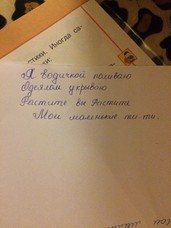 стихи. Иногда са-
ки:
Я водичкой поливаю
Одеялом укрываю
Растите вы Растите
Мои маленькие ти-ти.